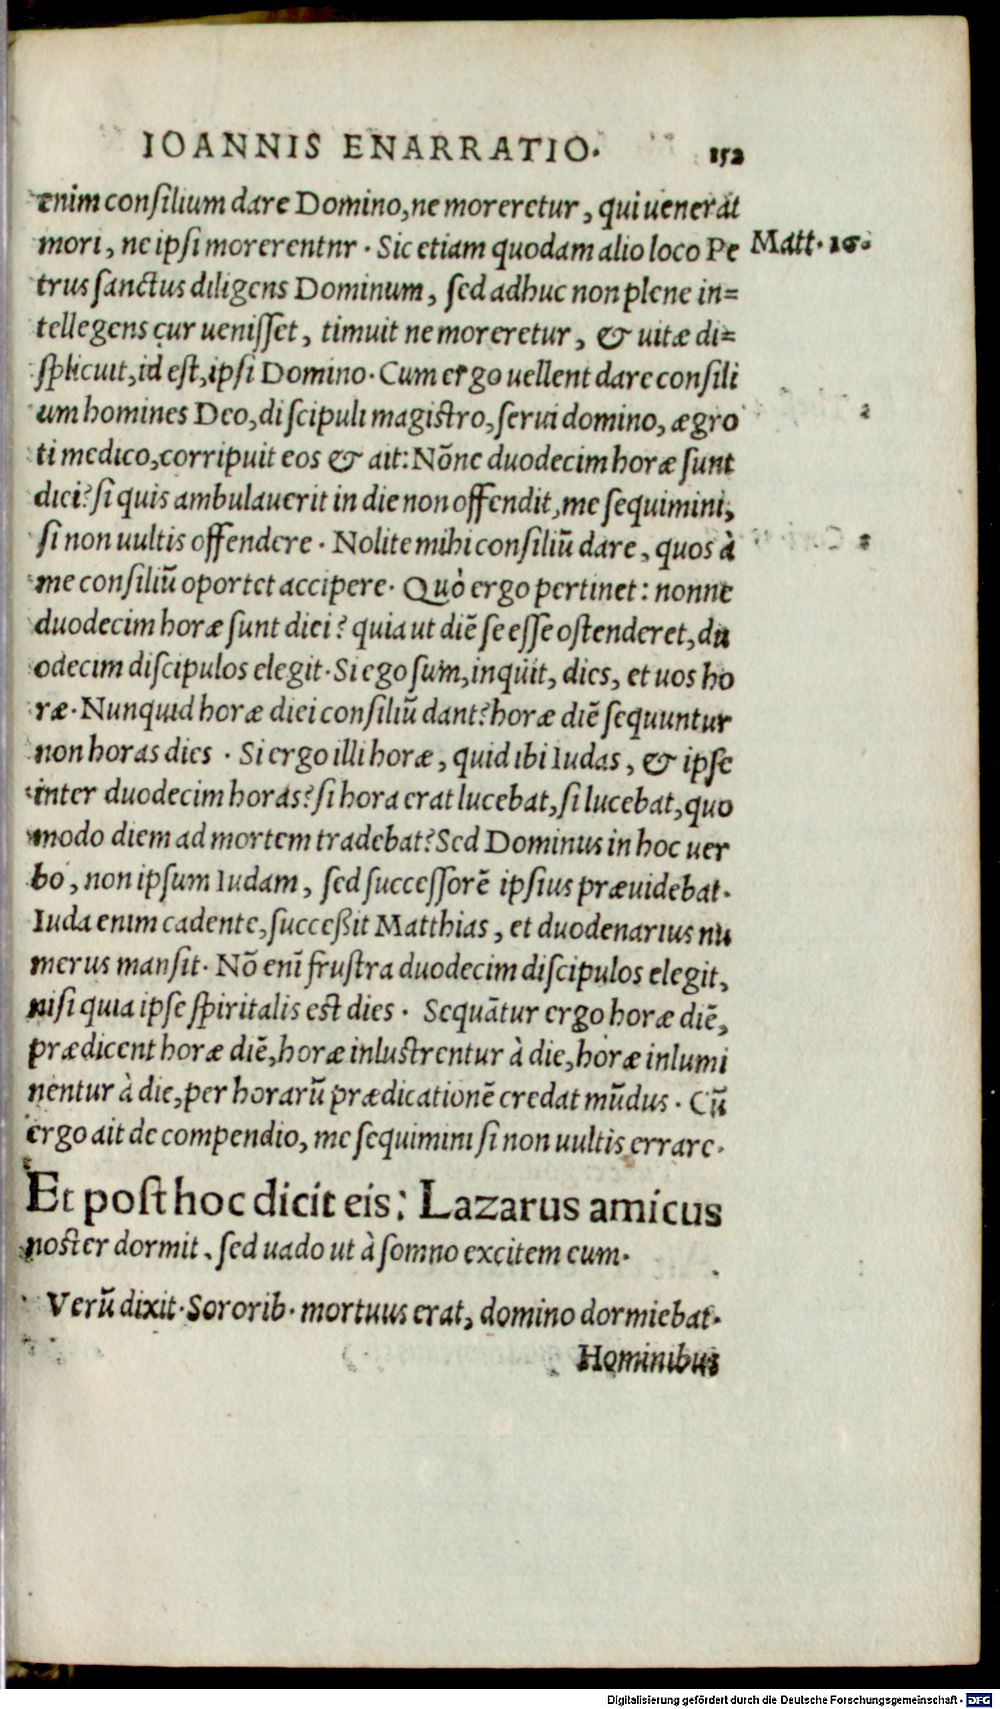 IOANNIS ENARRATIO. 152
enim consilium dare Domino, ne moreretur, qui uenerat
mori, ne ipsi morerentnr. Sic etiam quodam alio loco Pe Matt. 16.
trus sanctus diligens Dominum, sed adhuc non plene in=
tellegens cur uenisset, timuit ne moreretur, & uitæ di=
splicuit, id est, ipsi Domino. Cum ergo uellent dare consili
um homines Deo, discipuli magistro, serui domino, ægro
ti medico, corripuit eos & ait: Nõne duodecim horæ sunt
diei? si quis ambulauerit in die non offendit, me sequimini,
si non uultis offendere. Nolite mihi consiliũ dare, quos à
me consiliũ oportet accipere. Quò ergo pertinet: nonne
duodecim horæ sunt diei? quia ut diẽ se esse ostenderet, du
odecim discipulos elegit. Si ego sum, inquit, dies, et uos ho
ræ. Nunquid horæ diei consiliũ dant? horæ diẽ sequuntur
non horas dies. Si ergo illi horæ, quid ibi Iudas, & ipse
inter duodecim horas? si hora erat lucebat, si lucebat, quo
modo diem ad mortem tradebat? Sed Dominus in hoc uer
bo, non ipsum Iudam, sed successorẽ ipsius præuidebat.
Iuda enim cadente, succeßit Matthias, et duodenarius nu
merus mansit. Nõ enĩ frustra duodecim discipulos elegit,
nisi quia ipse spiritalis est dies. Sequãtur ergo horæ diẽ,
prædicent horæ diẽ, horæ inlustrentur à die, horæ inlumi
nentur à die, per horarũ prædicationẽ credat mũdus. Cũ
ergo ait de compendio, me sequimini si non uultis errare.
Et post hoc dicit eis: Lazarus amicus
noster dormit, sed uado ut à somno excitem eum.
Verũ dixit. Sororib. mortuus erat, domino dormiebat.
Hominibus
Digitalisierung gefördert durch die Deutsche Forschungsgemeinschaft - DFG